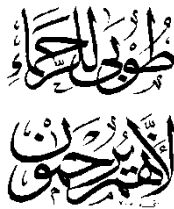 طُوبَى لِلرُّحَمَاءِ
لأَنَّهُمْ يُرْحَمُونَ